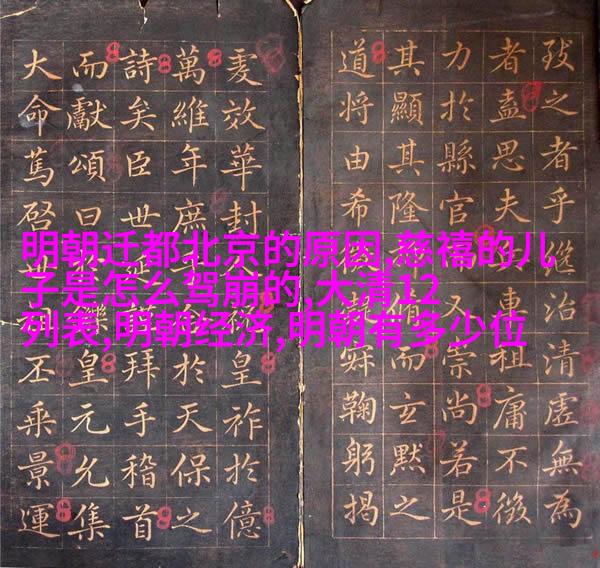 明朝迁都北京的原因,慈禧的儿
子是怎么驾崩的,大清12
列表,明朝经济,明朝有多少位
之者乎治清虛無為
者盍思夫專祖庸不
力於縣官又崇尚若是
其顯其隆脩而玄默之
道將由希鞠躬揭
效華封皇祚於億
萬維年庶於天保之
詩矣臣世拜手稽首
而獻頌曰皇元允集
大命篤啓丕乘景運